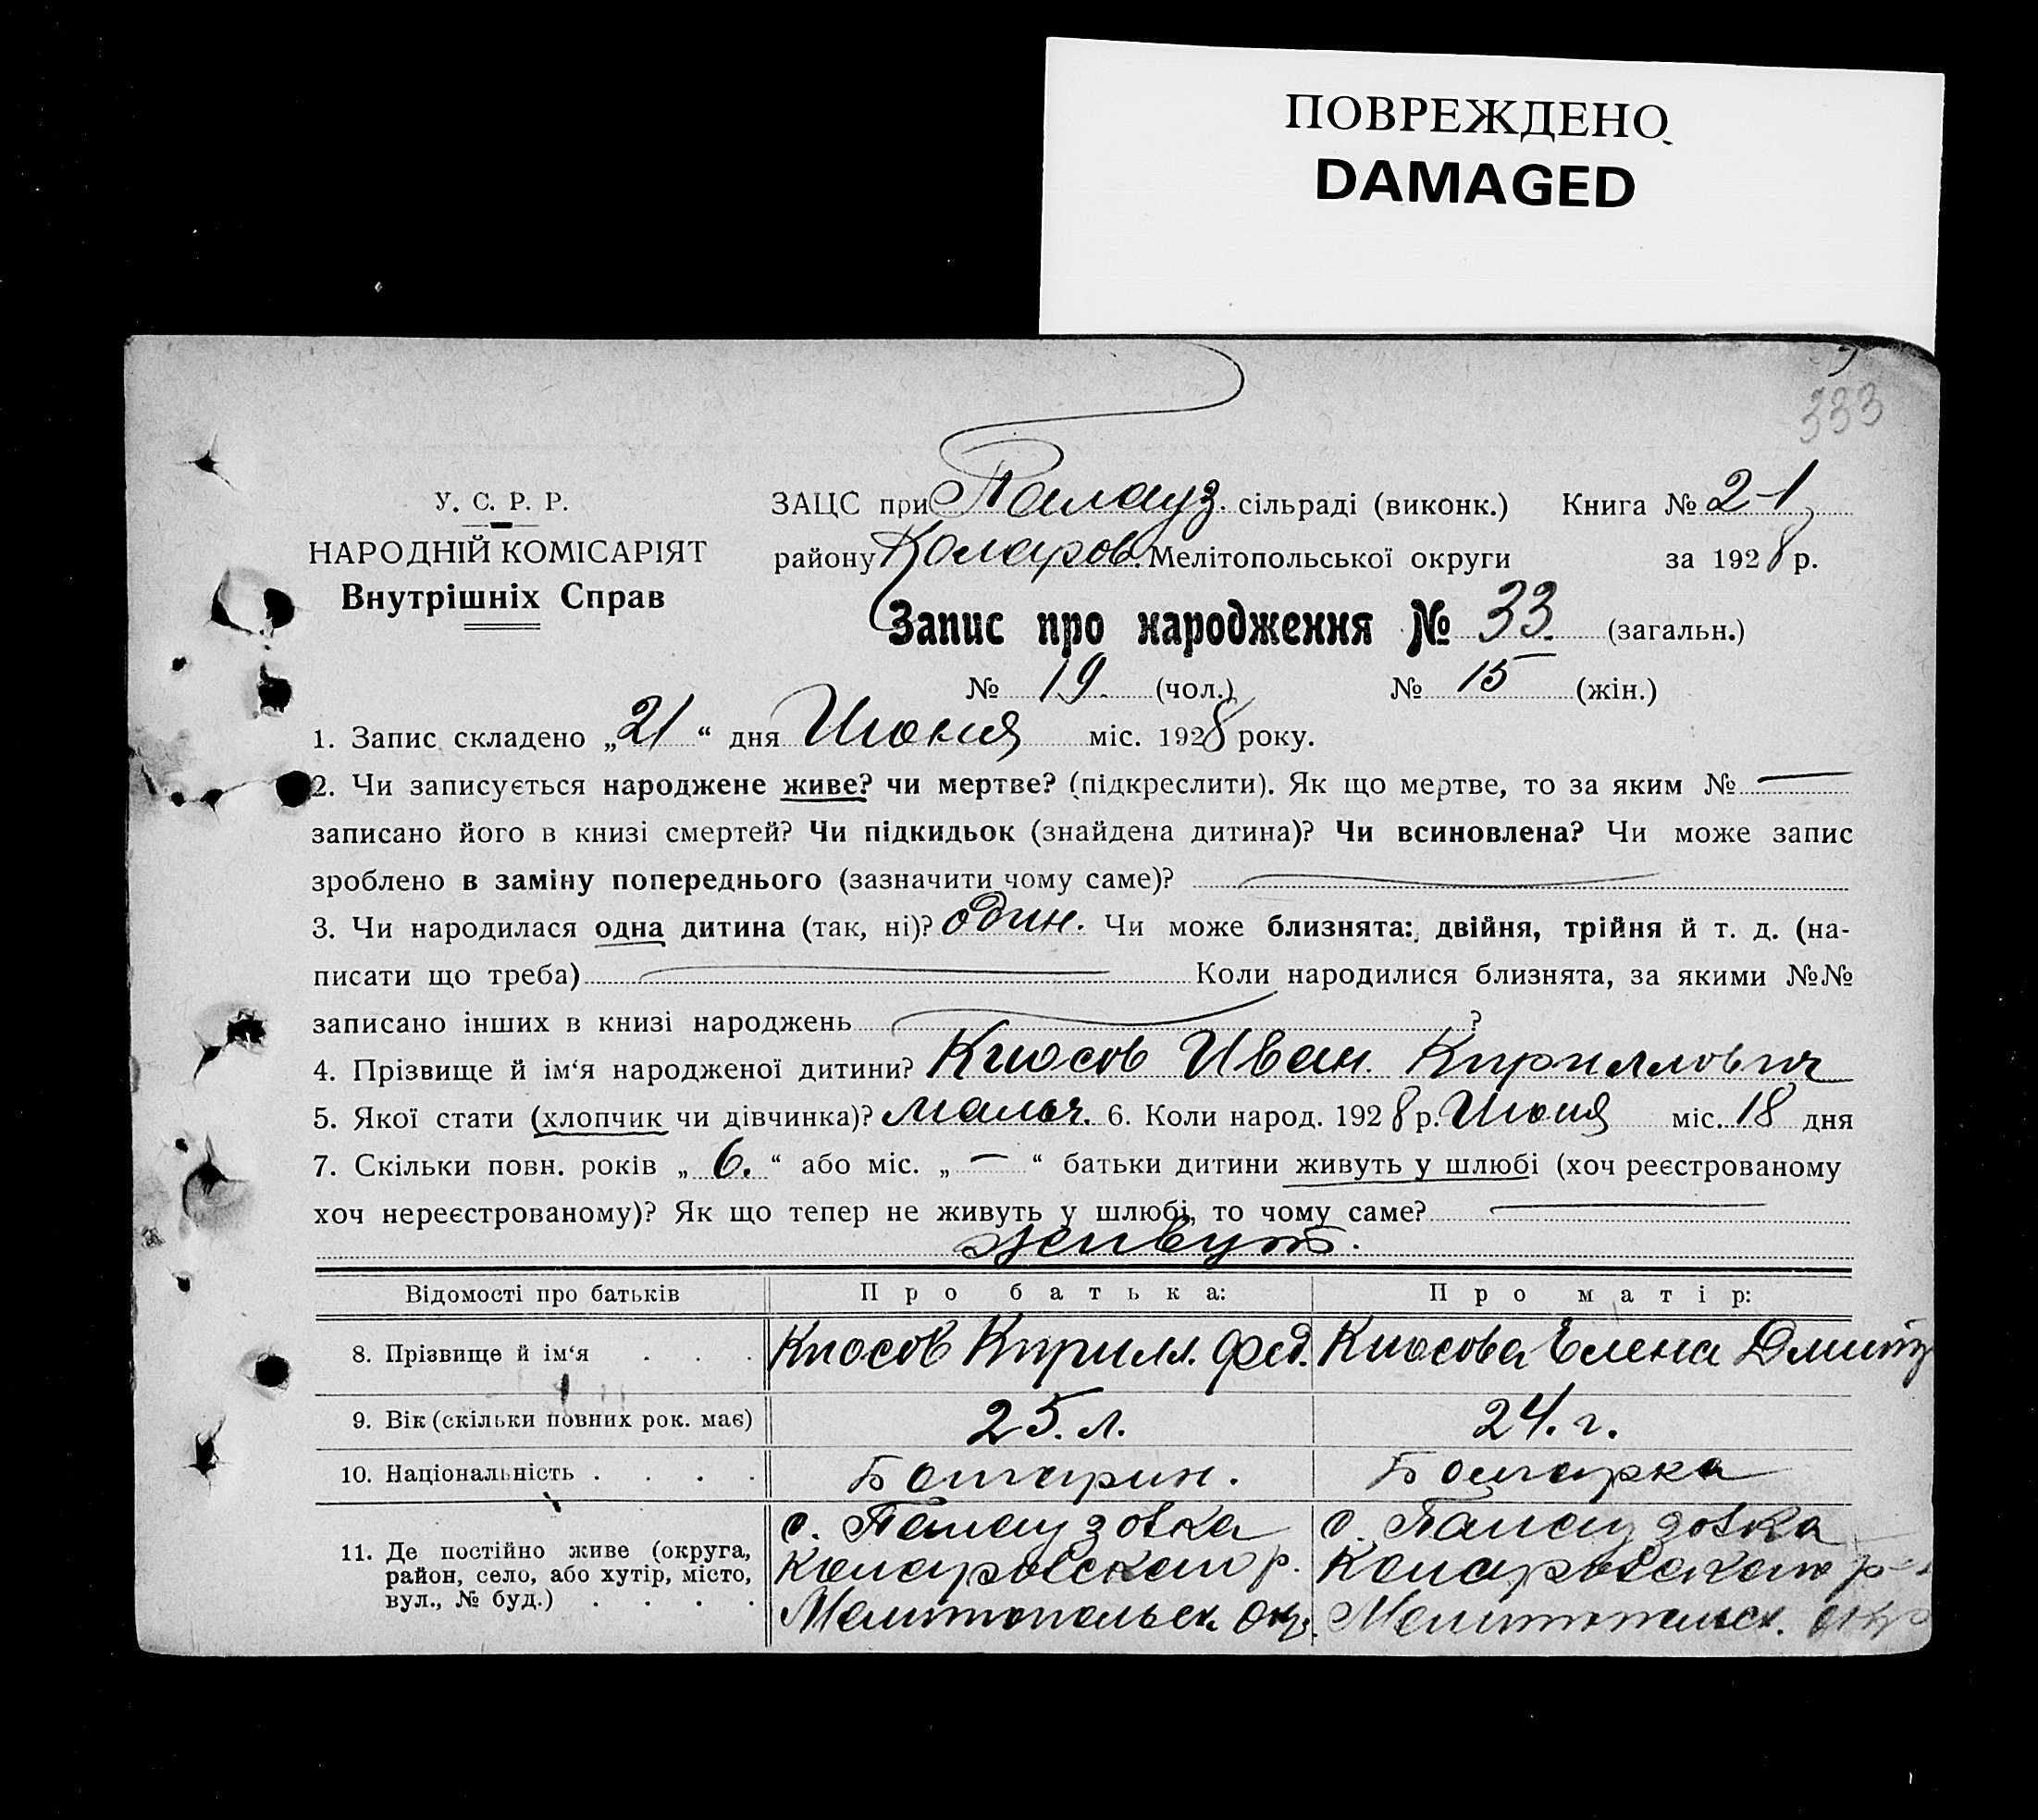 ПОВРЕЖДЕНО
DAMAGED
333
У. С. Р. Р.
НАРОДНІЙ КОМІСАРІЯТ
Внутрішніх Справ
ЗАЦС при Палауз. сільраді (виконк.) Книга № 2-1
району Коларов. Мелітопольської округи за 1928 р.
Запис про народження № 33. (загальн.)
№ 19. (чол.) № 15 (жін.)
1. Запис складено „21“ дня Июня міс. 1928 року.
2. Чи записується народжене живе? чи мертве? (підкреслити). Як що мертве, то за яким № —
записано його в книзі смертей? Чи підкидьок (знайдена дитина)? Чи всиновлена? Чи може запис
зроблено в заміну попереднього (зазначити чому саме)?
3. Чи народилася одна дитина (так, ні)? один. Чи може близнята: двійня, трійня й т. д. (на-
писати що треба) Коли народилися близнята, за якими №№
записано інших в книзі народжень ?
4. Прізвище й ім‘я народженої дитини? Киосов Иван. Кириллович
5. Якої стати (хлопчик чи дівчинка)? мальч. 6. Коли народ. 1928 р. Июня міс. 18 дня
7. Скільки повн. років „6.“ або міс. „—“ батьки дитини живуть у шлюбі (хоч реєстрованому
хоч нереєстрованому)? Як що тепер не живуть у шлюбі, то чому саме?
живут.
Відомості про батьків Про батька: Про матір:
8. Прізвище й ім‘я . . . Киосов Кирилл. Фед. Киосова Елена Дмитр
9. Вік (скільки повних рок. має) 25. л. 24. г.
10. Національність . . . . Болгарин. Болгарка
11. Де постійно живе (округа, район, село, або хутір, місто, вул., № буд.) . . . .
с. Палаузовка
Коларовского р.
Мелитопольск. окр.
с. Палаузовка
Коларовского р-
Мелитопольск. окр